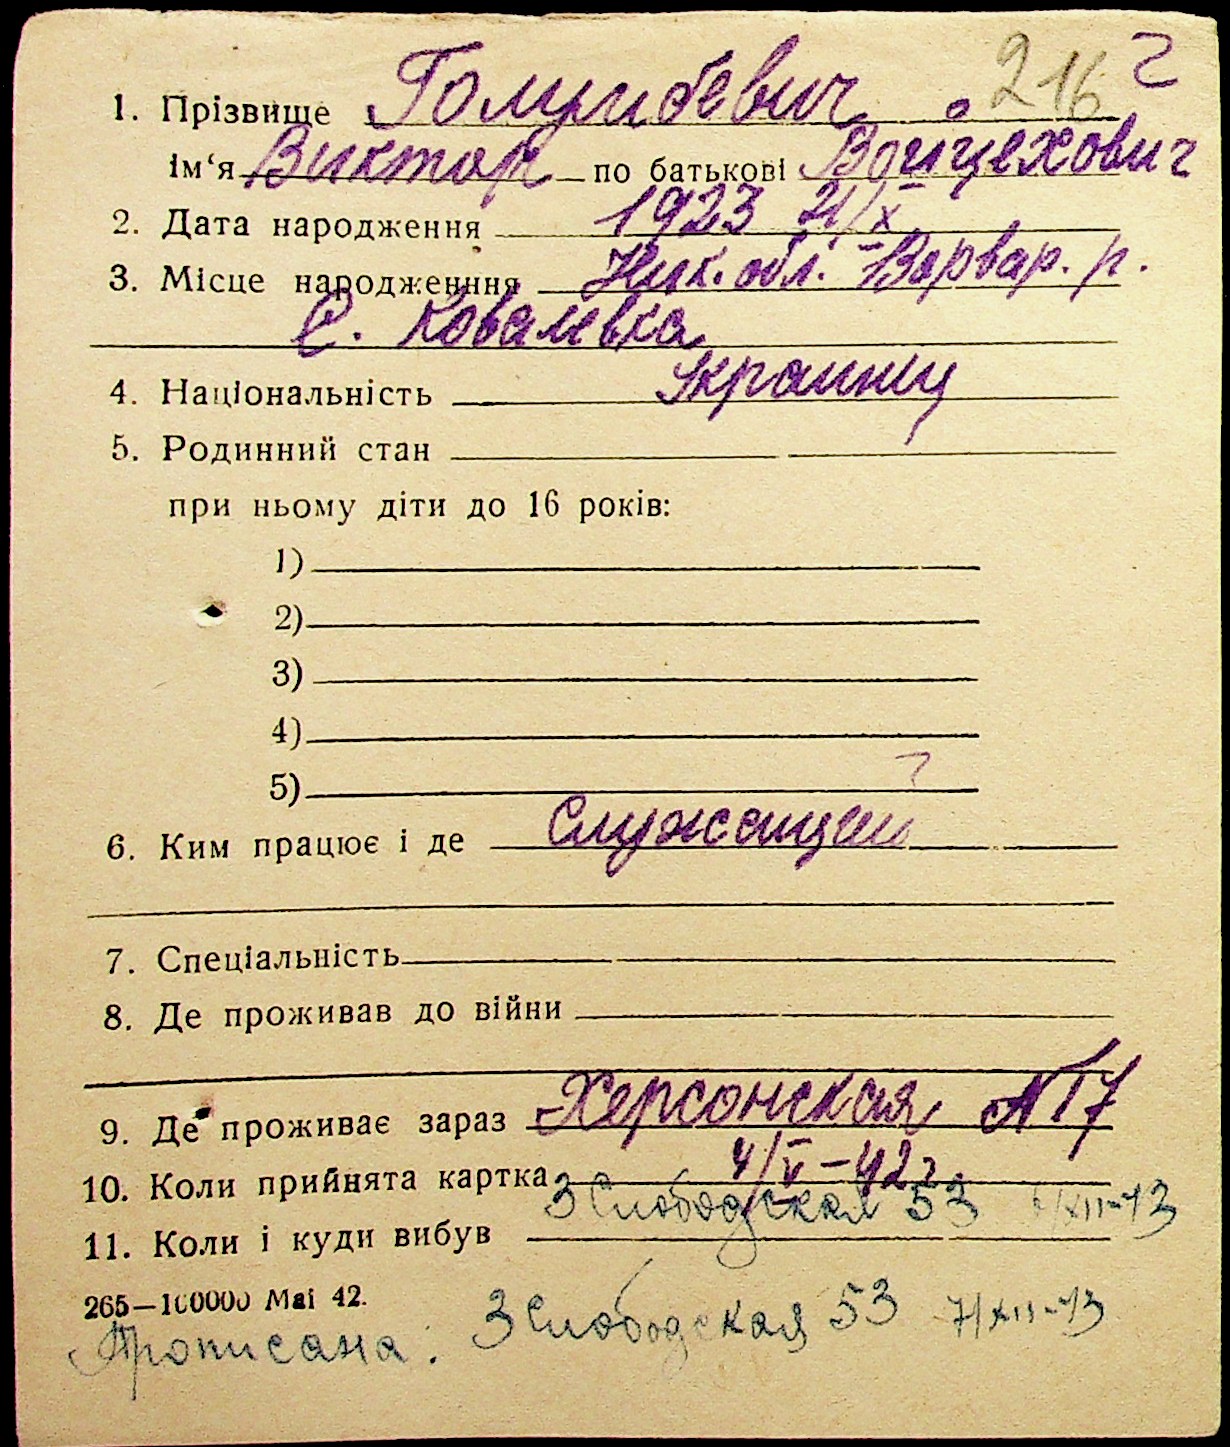 216 2
1. Прізвище Голумбевич
ім‘я Виктор по батькові Войцехович
2. Дата народження 1923 21/X
3. Місце народженння Ник. обл. Варвар. р.
С. Ковалевка
4. Національність Украинец
5. Родинний стан
при ньому діти до 16 років:
1)
2)
3)
4)
5)
6. Ким працює і де Служащий
7. Спеціальність
8. Де проживав до війни
9. Де проживає зараз Херсонская № 17
10. Коли прийнята картка 4/V-42г
3 Слободская 53 /XII-43
11. Коли і куди вибув
265—100000 Mai 42.
Прописана: 3 Слободская 53 7/XII-43